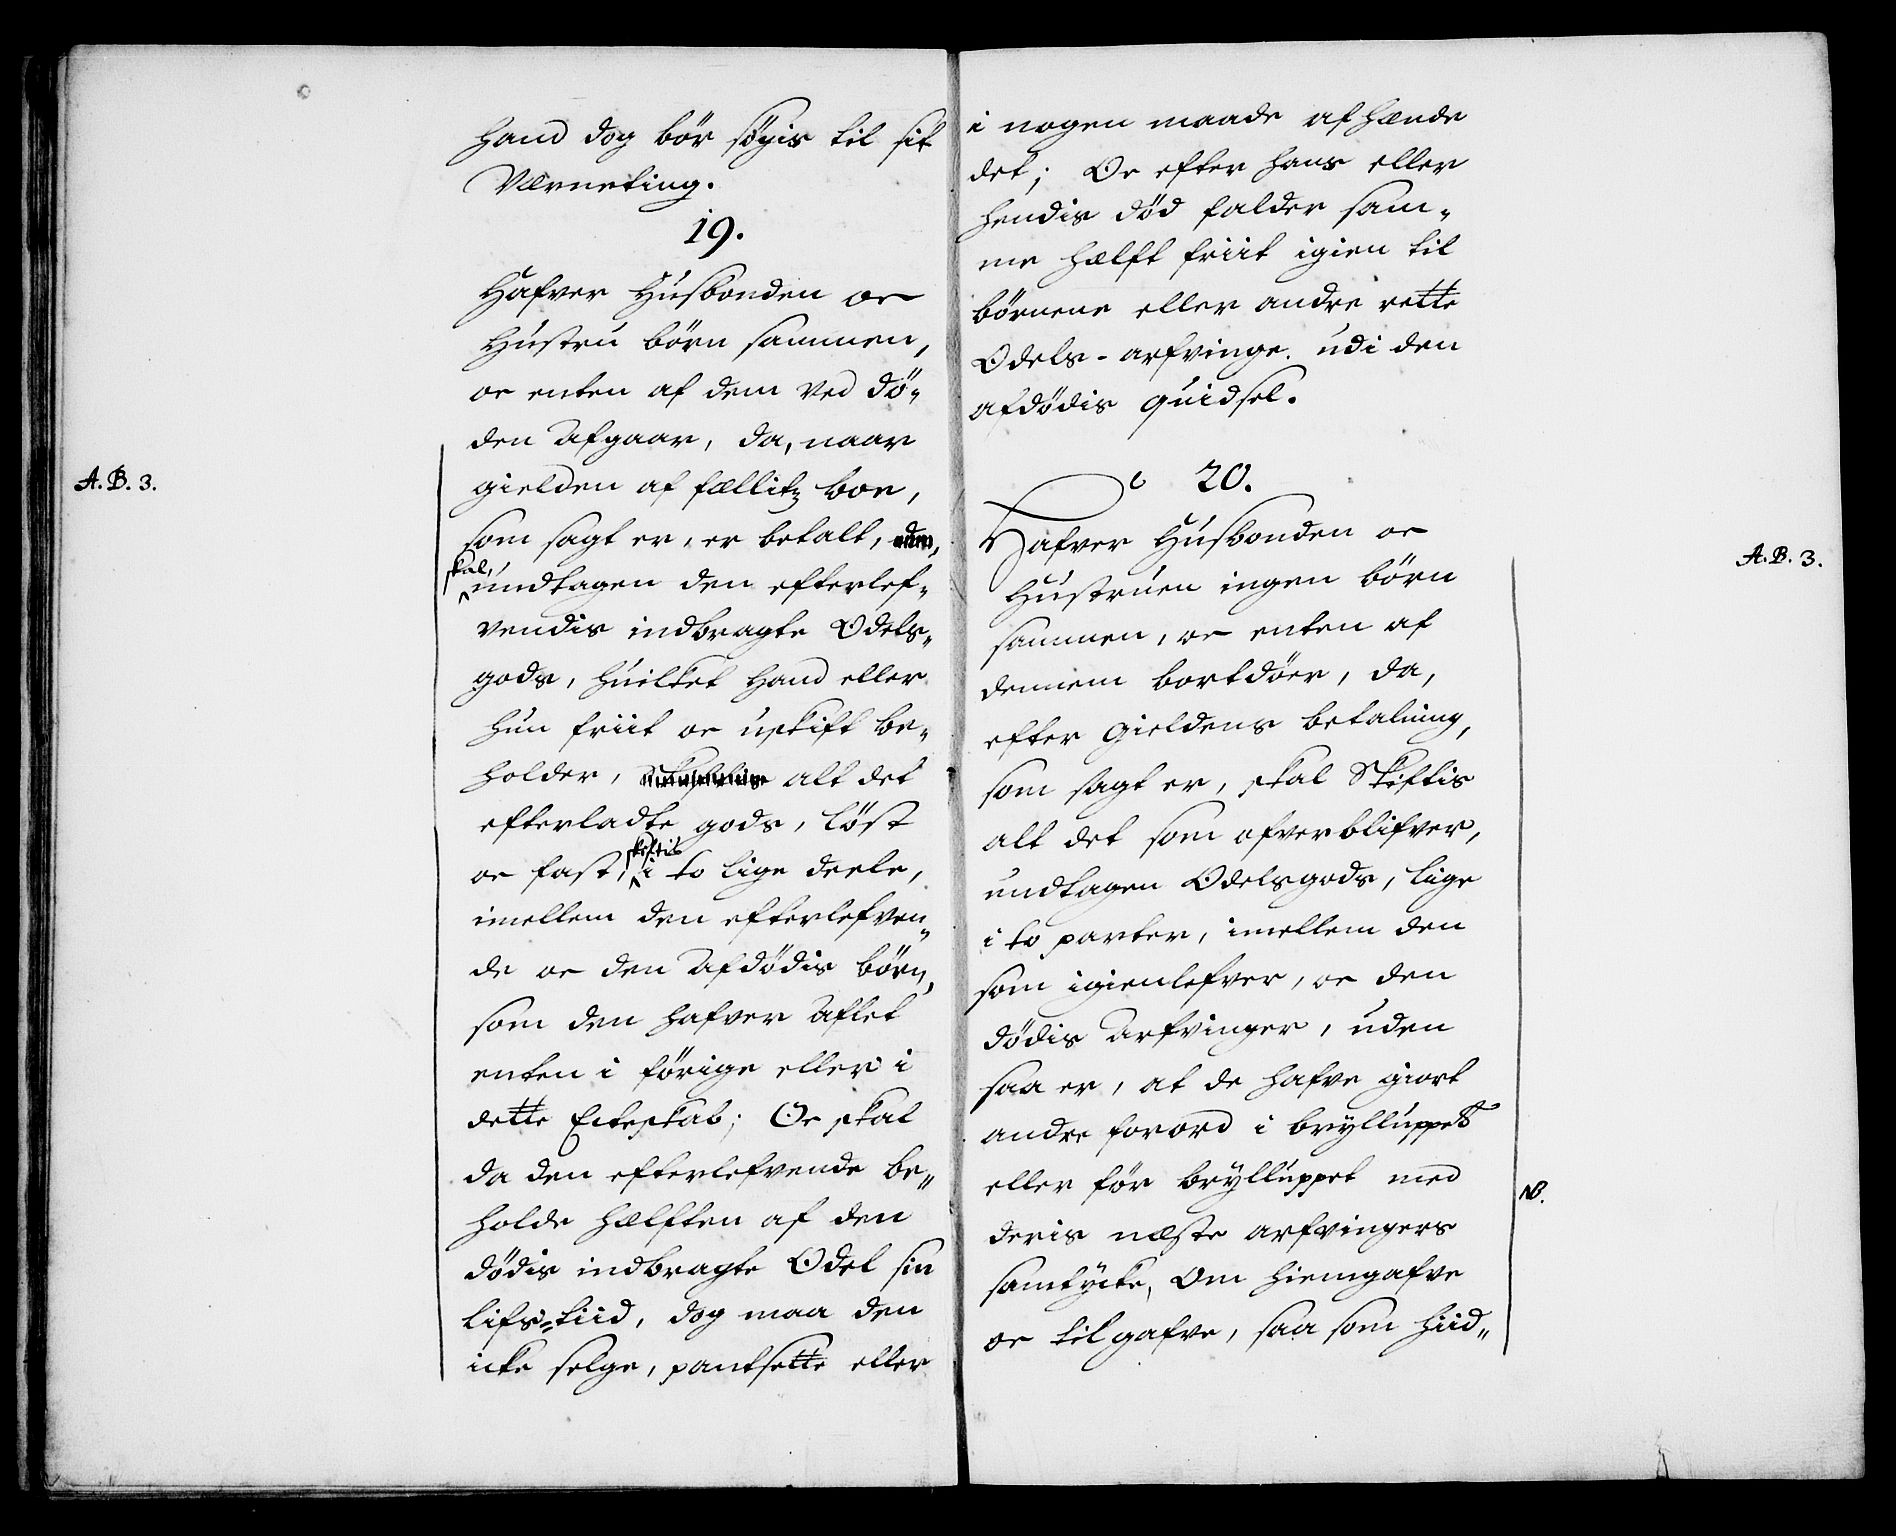 hand dog bör søgis til sit
Værneting.
19.
Hafver Husbonden oc
Hustru börn sammen,
oc enten af dem ved dö-
den Afgaar, da, naar
A. B. 3.
gielden af fællitz boe,
som sagt er, er betalt,
skal,
undtagen den efterlef-
vendis indbragte Odels-
gods, huilket hand eller
hun friit oc uskift be-
holder, alt det
efterladte gods, löst
oc fast, skiftis i to lige deele,
imellem den efterlefven-
de oc den Afdödis börn,
som den hafver Aflet
enten i förige eller i
dette Ecteskab; Oc skal
da den efterlefvende be-
holde hælften af den
dödis indbragte Odel sin
lifs-tiid, dog maa den
icke selge, pantsette eller
i nogen maade afhænde
det; Oc efter hans eller
hendis död falder sam-
me hælft friit igien til
börnene eller andre rette
Odels-arfvinge udi den
afdödis quidsel.
20.
Hafver Husbonden oc
A. B. 3.
Hustruen ingen börn
sammen, oc enten af
dennem bortdöer, da,
efter Gieldens betalning,
som sagt er, skal Skiftis
alt det som ofverblifver,
undtagen Odelsgods, lige
i to parter, imellem den
som igienlefver, oc den
dödis Arfvinger, uden
saa er, at de hafve giort
andre forord i brylluppet
eller för brylluppet med
NB.
deris næste arfvingers
samtycke, Om hiemgafve
oc tilgafve, saa som hiid-